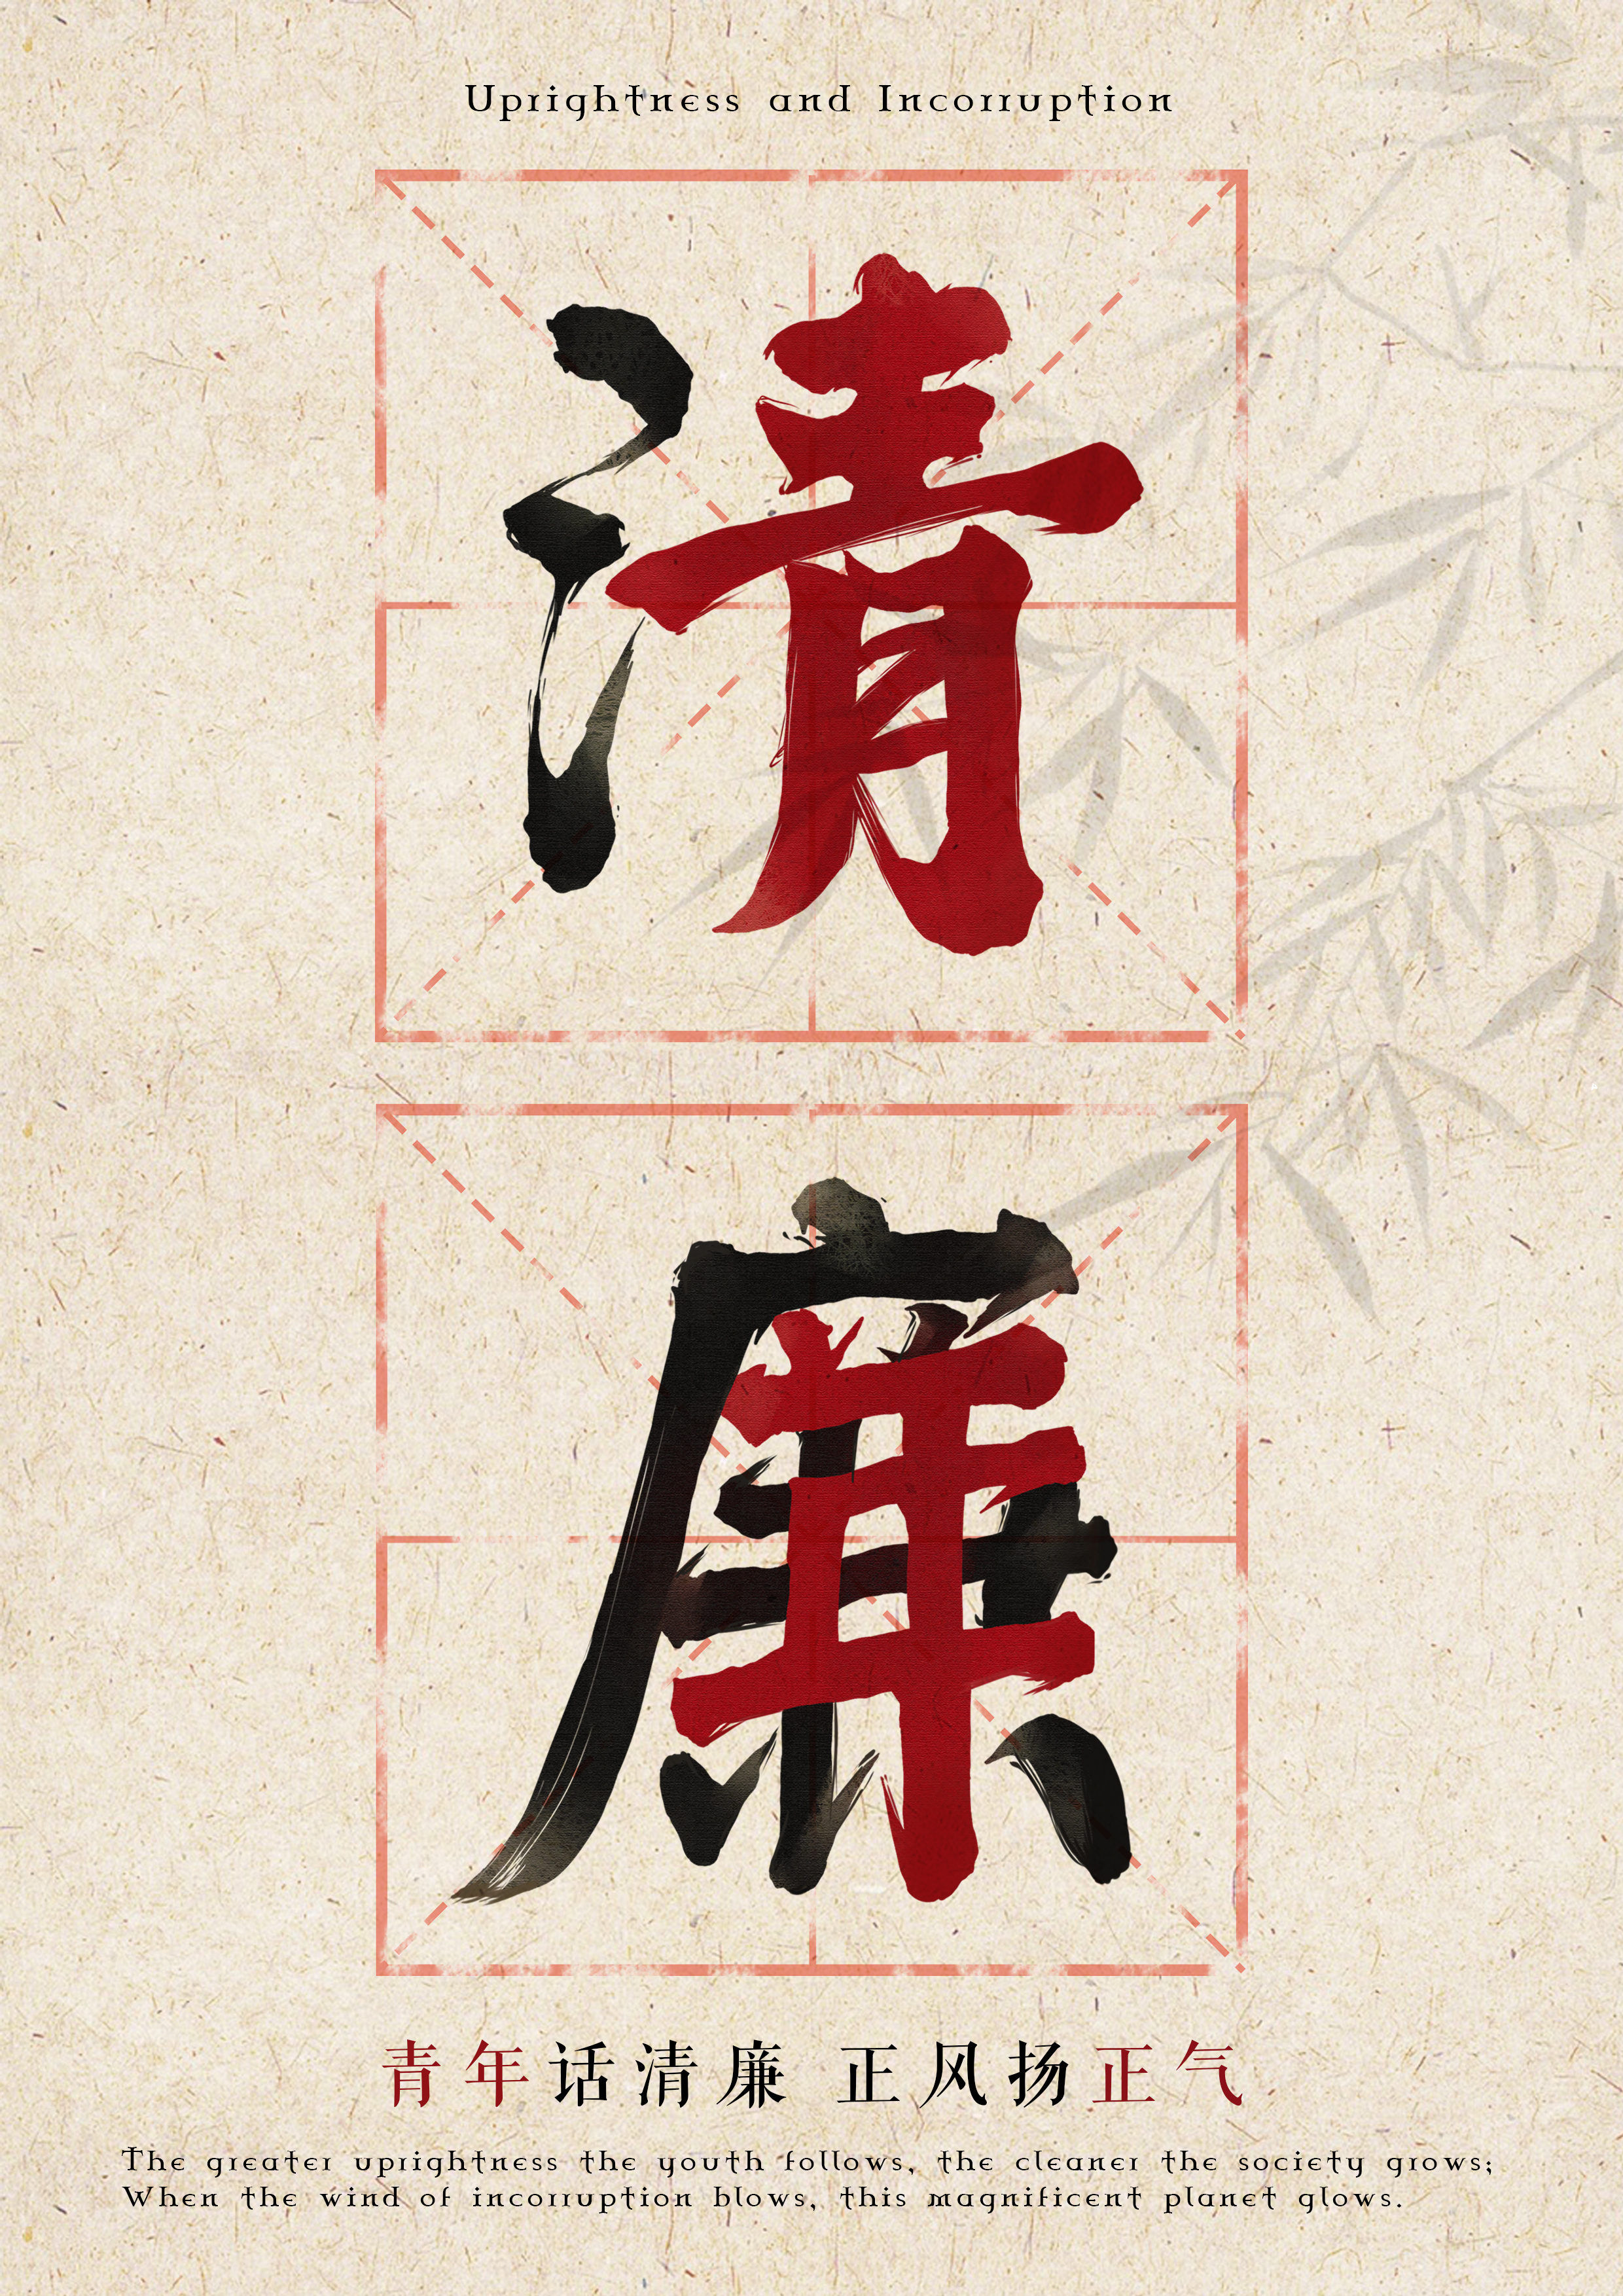 Uprightness and Incorruption
清
廉
青年话清廉 正风扬正气
The greater uprightness the youth follows, the cleaner the society grows;
When the wind of incorruption blows, this magnificent planet glows.